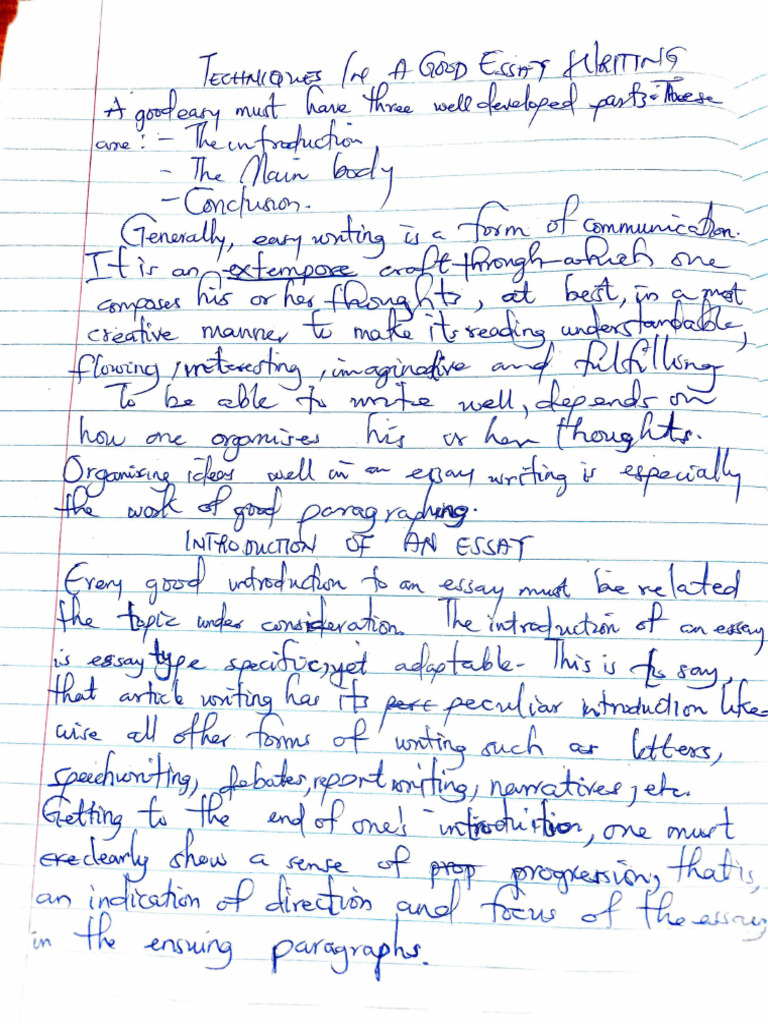 TECHNIQUES IN A GOOD ESSAY WRITING
A good easy must have three well developed parts. These
are: - The introduction,
- The Main body
- Conclusion.
Generally, easy writing is a form of communication.
It is an extempore craft through which one
composes his or her thoughts, at best, in a most
creative manner to make its reading understandable,
flowing, interesting, imaginative and fulfilling
To be able to write well, depends on
how one organises his or her thoughts.
Organising ideas well in an essay writing is especially
the work of good paragraphing.
INTRODUCTION OF AN ESSAY
Every good introduction to an essay must be related
the topic under consideration. The introduction of an essay
is essay type specific, yet adaptable. This is to say,
that article writing has its peculiar introduction like
wise all other forms of writing such as letters,
speechwriting, debates, report writing, narratives, etc.
Getting to the end of one's introduction, one must
clearly show a sense of progression, that is,
an indication of direction and focus of the essay
in the ensuing paragraphs.